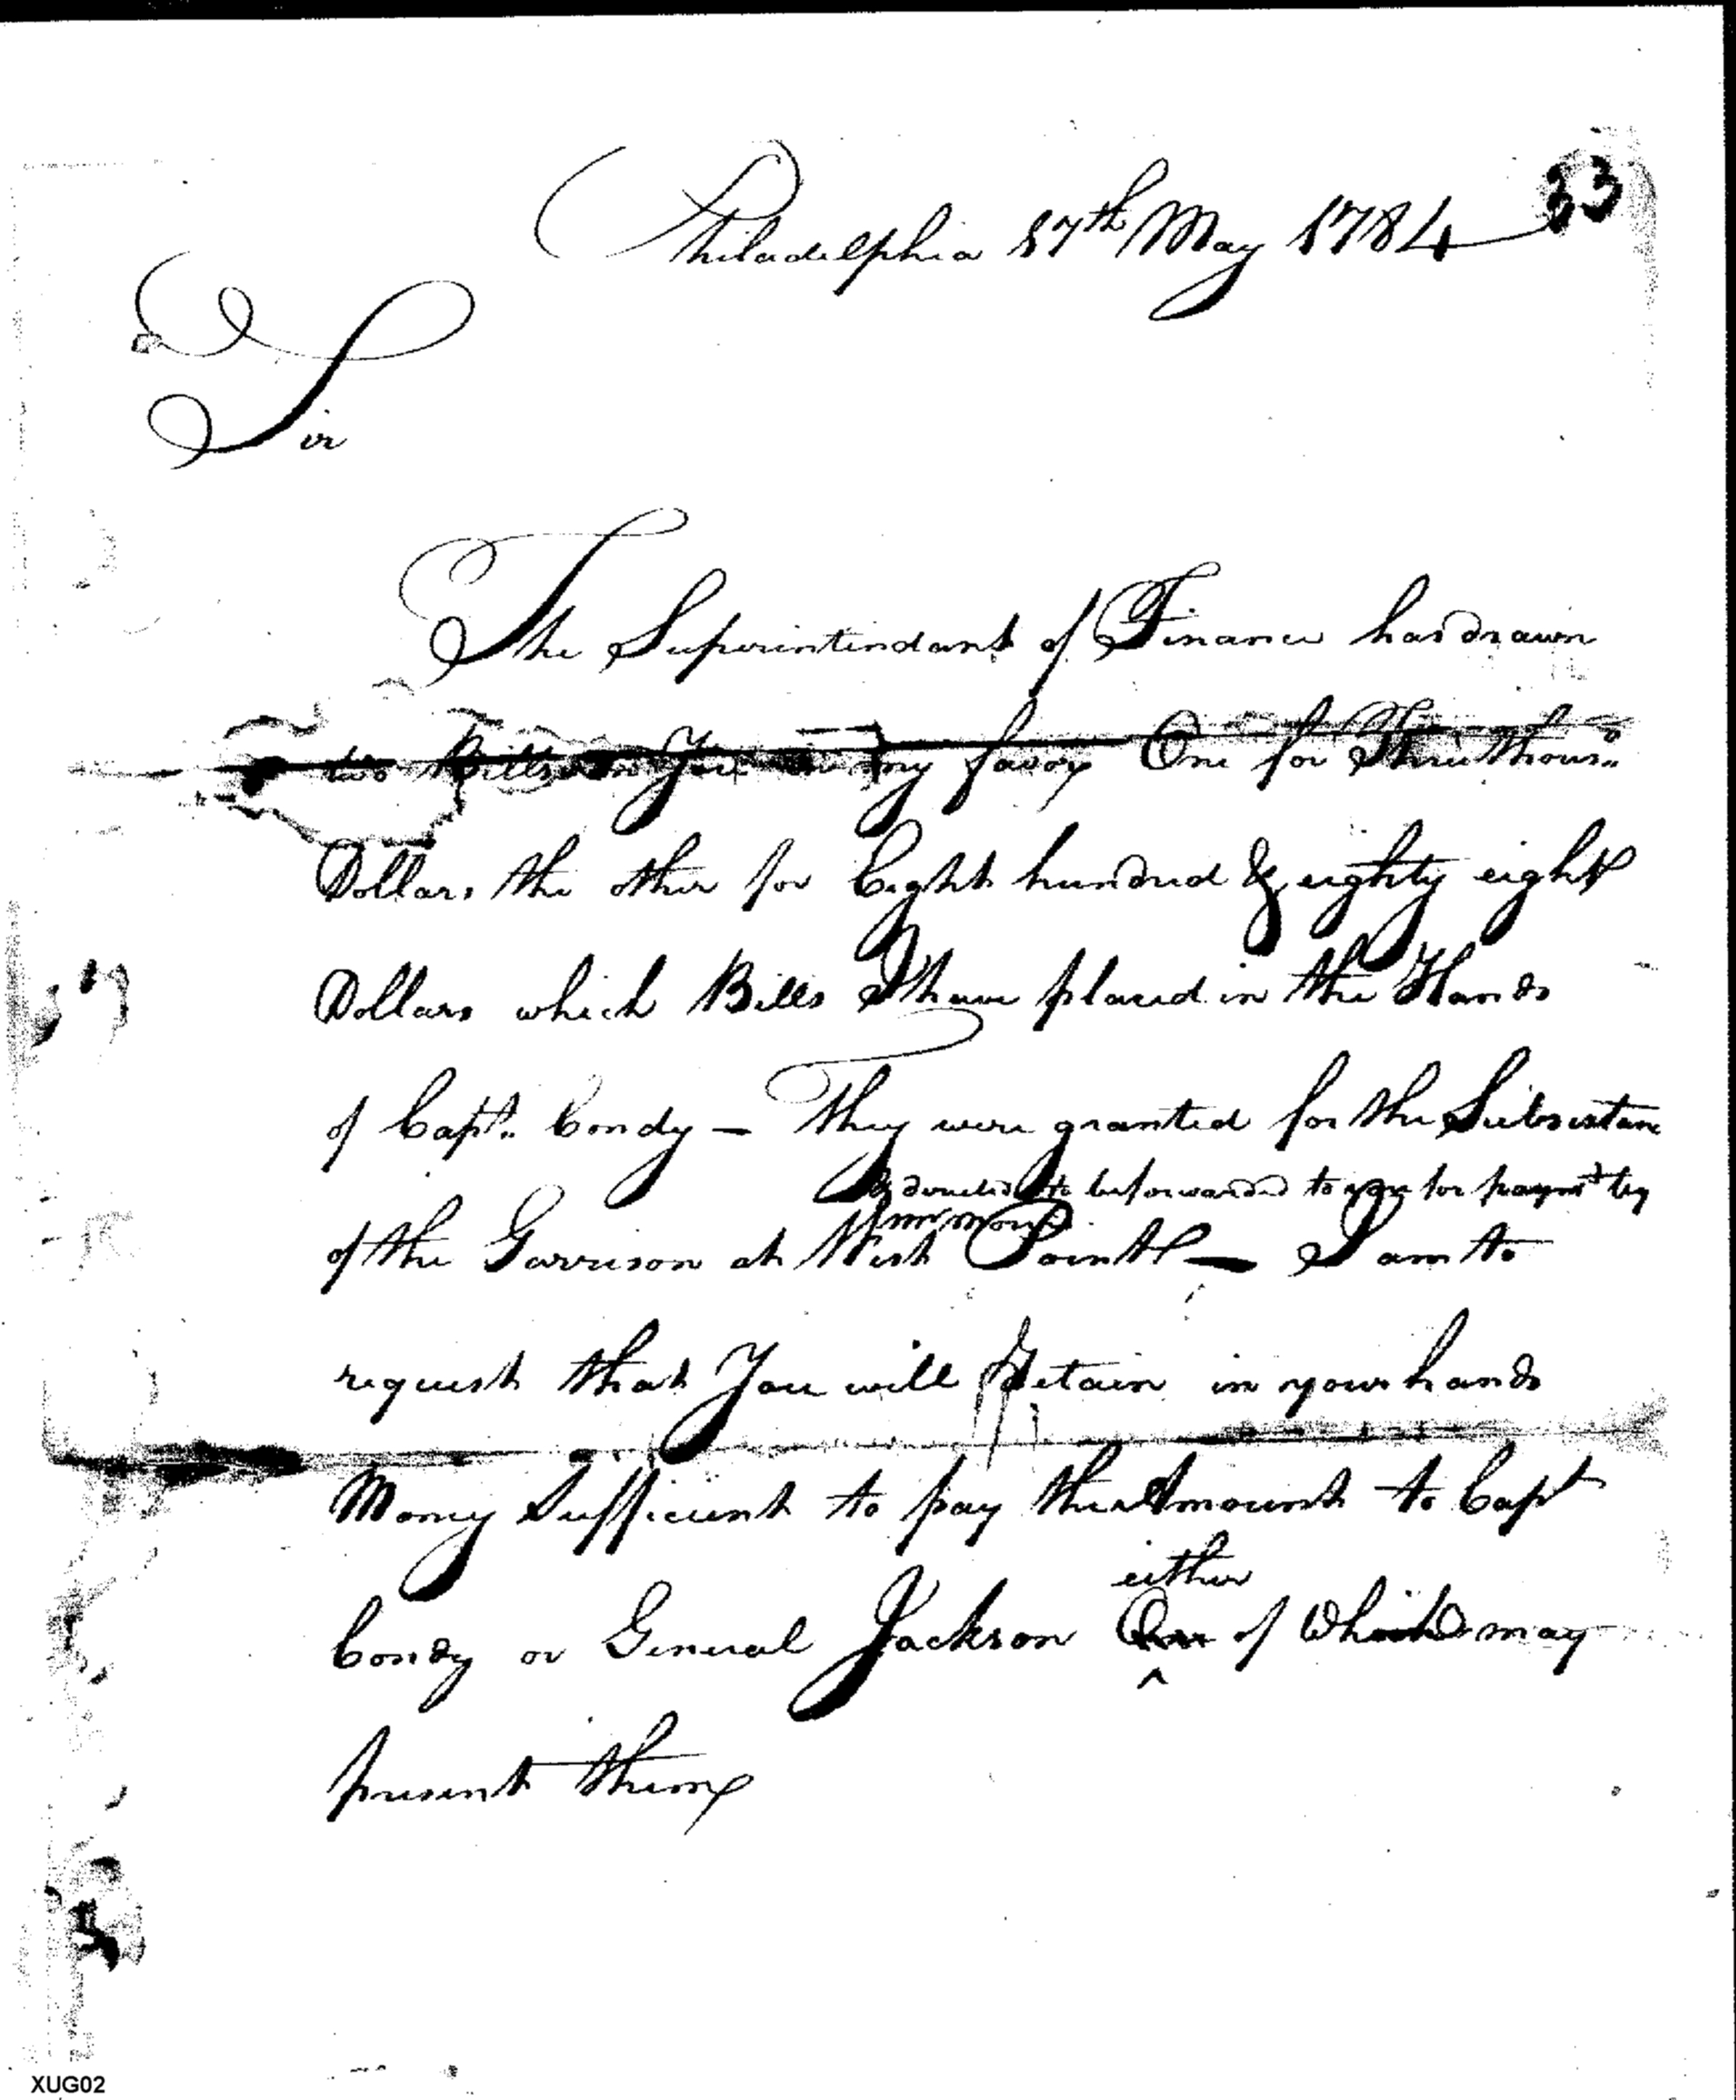 33
Philadelphia 17th May 1784
Sir
The Superintendant of Finance has drawn
two Bills on You in my favor One for Three thous.d
Dollars the other for Eight hundred & eighty eight
Dollars which Bills I have placed in the Hands
of Capt. Condy — They were granted for the Subsistance
& directed to be forwarded to you for paymt by
of the Garrison at West Point — I am to
request that You will Retain in your hands
Money Sufficient to pay the Amount to Capt
either
Condy or General Jackson of may
present them
XUG02